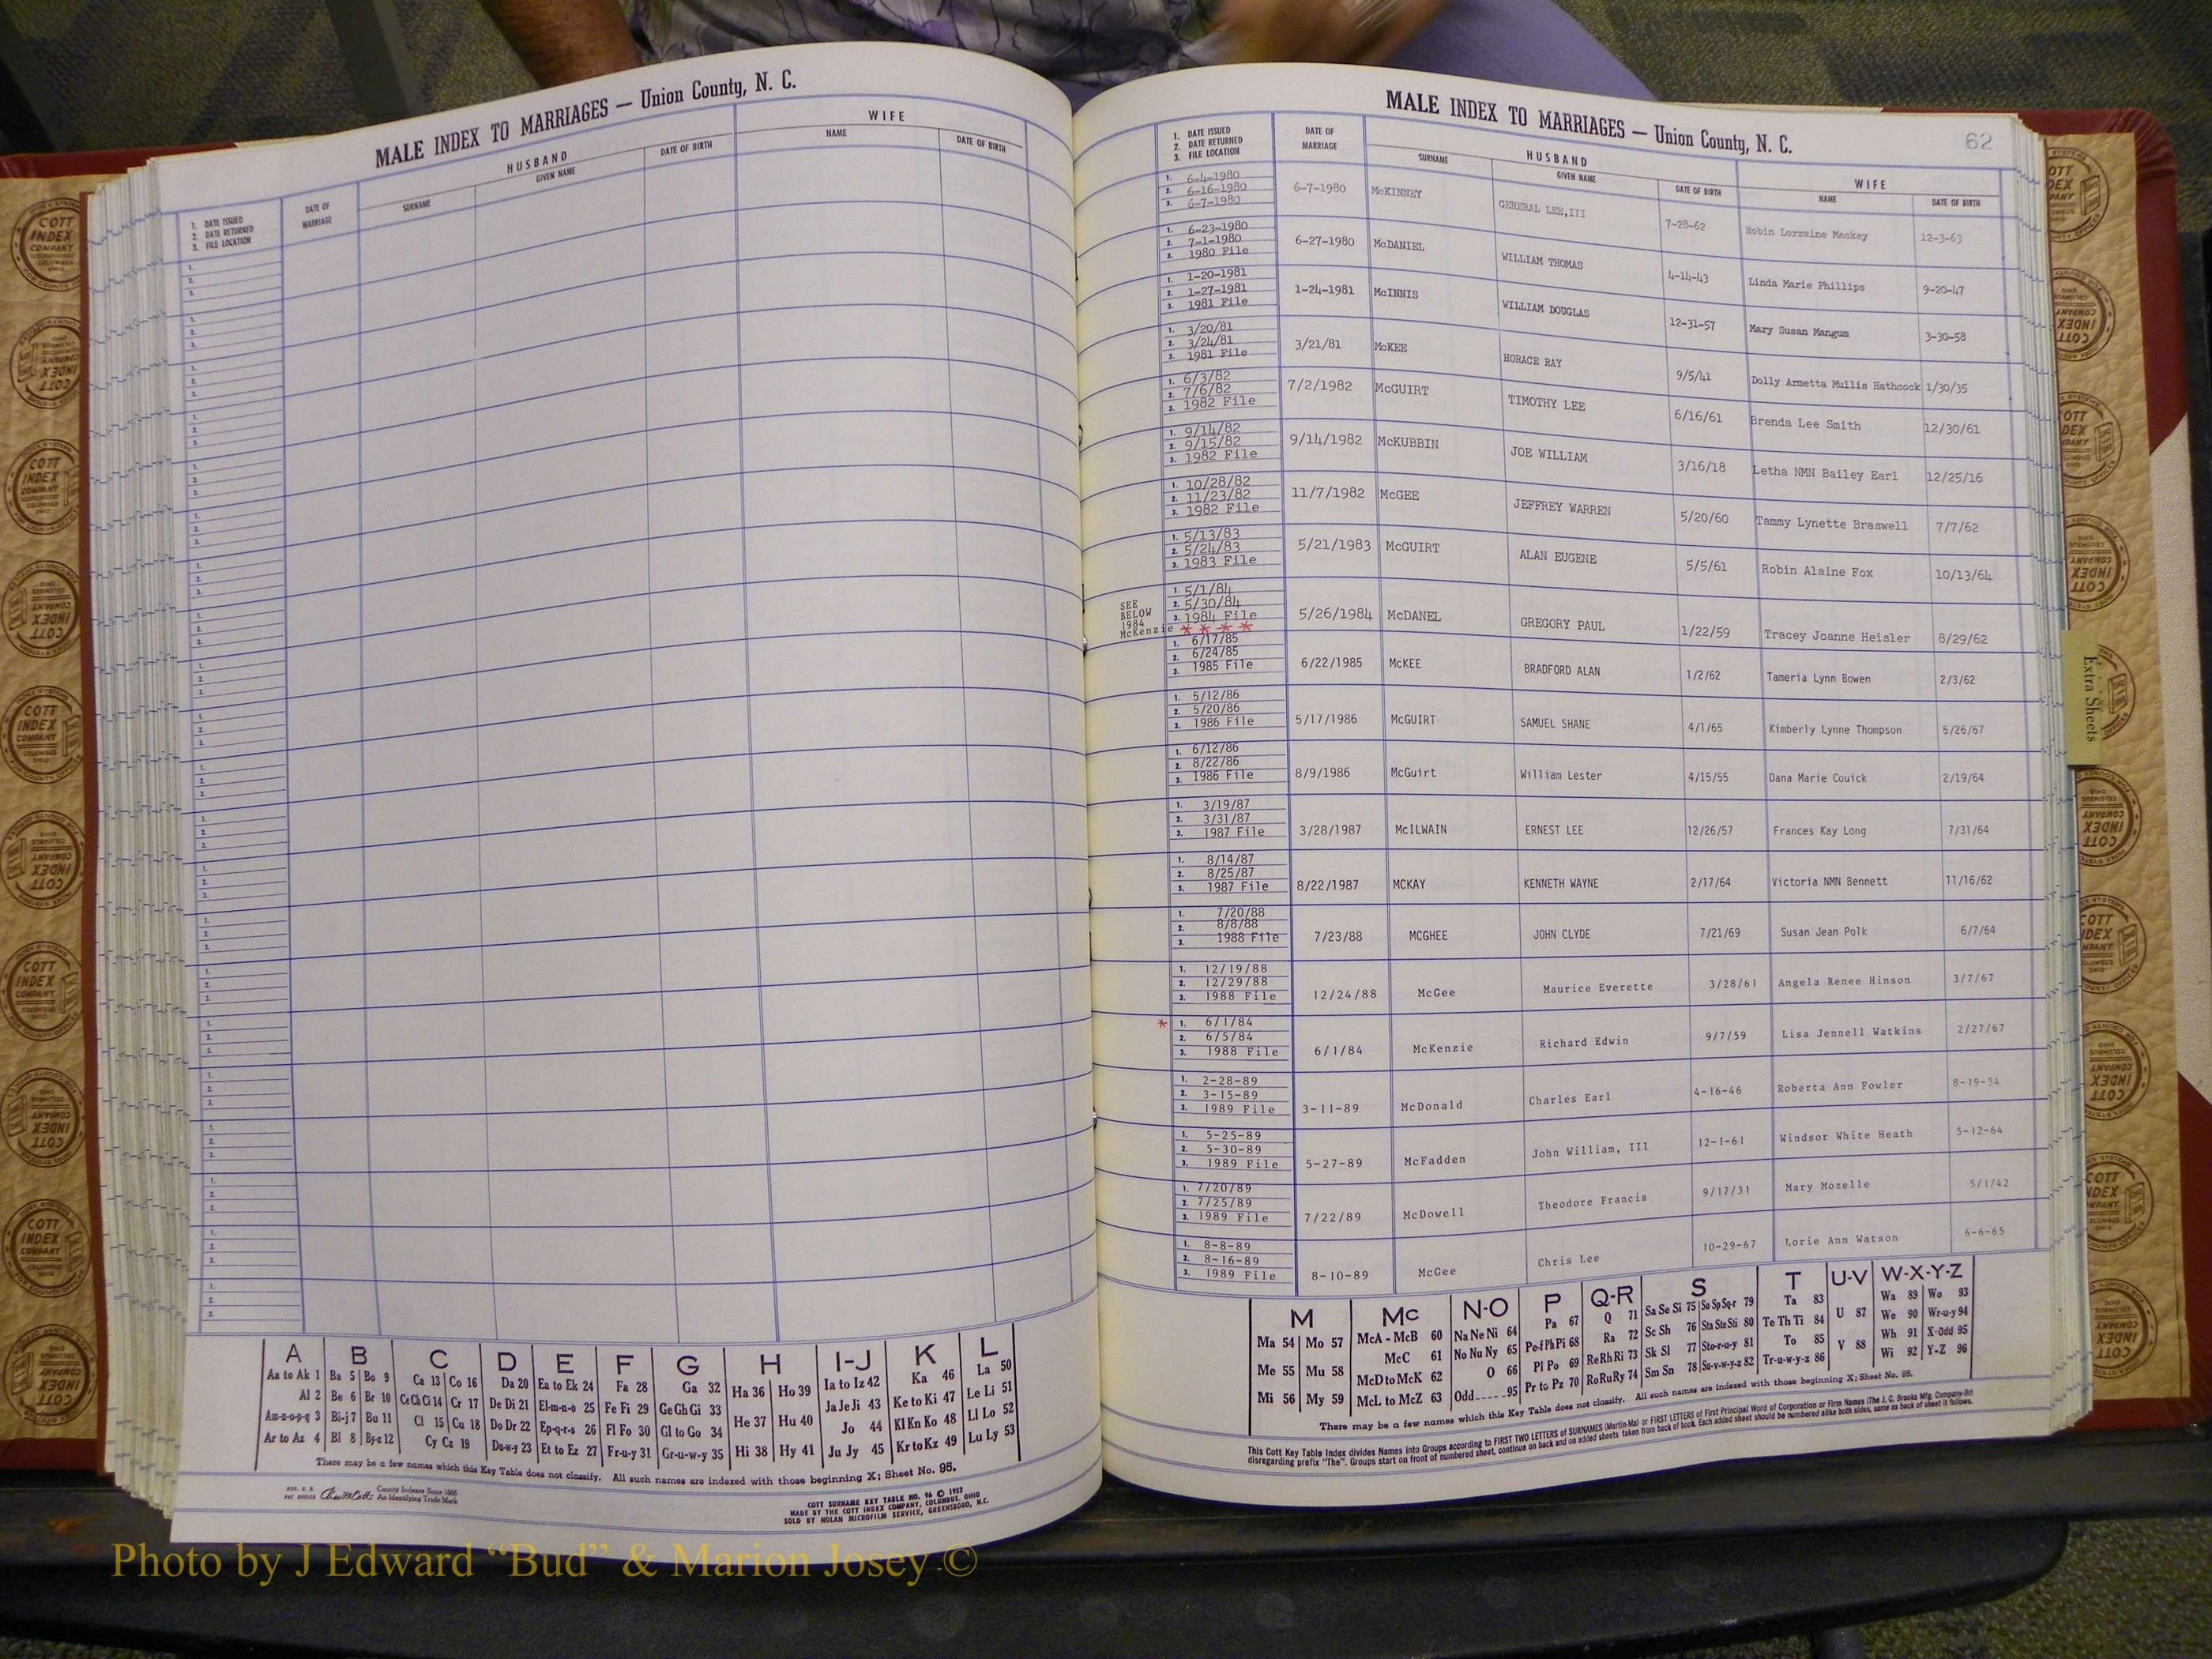 MALE INDEX TO MARRIAGES — Union County, N. C.
HUSBAND WIFE
1. DATE ISSUED
2. DATE RETURNED
3. FILE LOCATION
DATE OF MARRIAGE SURNAME GIVEN NAME DATE OF BIRTH NAME DATE OF BIRTH
A B C D E F G H I-J K L
Aa to Ak 1 Ba 5 Bo 9 Ca 13 Co 16 Da 20 Ea to Ek 24 Fa 28 Ga 32 Ha 36 Ho 39 Ia to Iz 42 Ka 46 La 50
Al 2 Be 6 Br 10 Ce Ch Ci 14 Cr 17 De Di 21 El-m-n-o 25 Fe Fi 29 Ge Gh Gi 33 He 37 Hu 40 Ja Je Ji 43 Ke to Ki 47 Le Li 51
Am-n-o-p-q 3 Bi-j 7 Bu 11 Cl 15 Cu 18 Do Dr 22 Ep-q-r-s 26 Fl Fo 30 Gl to Go 34 Hi 38 Hy 41 Jo 44 Kl Kn Ko 48 Ll Lo 52
Ar to Az 4 Bl 8 By-z 12 Cy Cz 19 Du-w-y 23 Et to Ez 27 Fr-u-y 31 Gr-u-w-y 35 Ju Jy 45 Kr to Kz 49 Lu Ly 53
There may be a few names which this Key Table does not classify. All such names are indexed with those beginning X; Sheet No. 95.
County Indexes Since 1888
An Identifying Trade Mark
COTT SURNAME KEY TABLE NO. 96 © 1952
MADE BY THE COTT INDEX COMPANY, COLUMBUS, OHIO
SOLD BY NOLAN MICROFILM SERVICE, GREENSBORO, N.C.
MALE INDEX TO MARRIAGES — Union County, N. C.
62
1. DATE ISSUED
2. DATE RETURNED
3. FILE LOCATION
DATE OF MARRIAGE HUSBAND SURNAME GIVEN NAME DATE OF BIRTH WIFE NAME DATE OF BIRTH
1. 6-4-1980
2. 6-16-1980
3. 6-7-1980
6-7-1980 McKINNEY GEHERAL LEE,III 7-28-62 Robin Lorraine Mackey 12-3-63
1. 6-23-1980
2. 7-1-1980
3. 1980 File
6-27-1980 McDANIEL WILLIAM THOMAS 4-14-43 Linda Marie Phillips 9-20-47
1. 1-20-1981
2. 1-27-1981
3. 1981 File
1-24-1981 McINNIS WILLIAM DOUGLAS 12-31-57 Mary Susan Mangum 3-30-58
1. 3/20/81
2. 3/24/81
3. 1981 File
3/21/81 McKEE HORACE RAY 9/5/41 Dolly Armetta Mullis Hathcock 1/30/35
1. 6/3/82
2. 7/6/82
3. 1982 File
7/2/1982 McGUIRT TIMOTHY LEE 6/16/61 Brenda Lee Smith 12/30/61
1. 9/14/82
2. 9/15/82
3. 1982 File
9/14/1982 McKUBBIN JOE WILLIAM 3/16/18 Letha NMN Bailey Earl 12/25/16
1. 10/28/82
2. 11/23/82
3. 1982 File
11/7/1982 McGEE JEFFREY WARREN 5/20/60 Tammy Lynette Braswell 7/7/62
1. 5/13/83
2. 5/24/83
3. 1983 File
5/21/1983 McGUIRT ALAN EUGENE 5/5/61 Robin Alaine Fox 10/13/64
SEE
BELOW
1984
McKenzie * * * *
1. 5/1/84
2. 5/30/84
3. 1984 File
5/26/1984 McDANEL GREGORY PAUL 1/22/59 Tracey Joanne Heisler 8/29/62
1. 6/17/85
2. 6/24/85
3. 1985 File
6/22/1985 McKEE BRADFORD ALAN 1/2/62 Tameria Lynn Bowen 2/3/62
1. 5/12/86
2. 5/20/86
3. 1986 File
5/17/1986 McGUIRT SAMUEL SHANE 4/1/65 Kimberly Lynne Thompson 5/26/67
1. 6/12/86
2. 8/22/86
3. 1986 File
8/9/1986 McGuirt William Lester 4/15/55 Dana Marie Couick 2/19/64
1. 3/19/87
2. 3/31/87
3. 1987 File
3/28/1987 McILWAIN ERNEST LEE 12/26/57 Frances Kay Long 7/31/64
1. 8/14/87
2. 8/25/87
3. 1987 File
8/22/1987 MCKAY KENNETH WAYNE 2/17/64 Victoria NMN Bennett 11/16/62
1. 7/20/88
2. 8/8/88
3. 1988 File
7/23/88 MCGHEE JOHN CLYDE 7/21/69 Susan Jean Polk 6/7/64
1. 12/19/88
2. 12/29/88
3. 1988 File
12/24/88 McGee Maurice Everette 3/28/61 Angela Renee Hinson 3/7/67
* 1. 6/1/84
2. 6/5/84
3. 1988 File
6/1/84 McKenzie Richard Edwin 9/7/59 Lisa Jennell Watkins 2/27/67
1. 2-28-89
2. 3-15-89
3. 1989 File
3-11-89 McDonald Charles Earl 4-16-46 Roberta Ann Fowler 8-19-54
1. 5-25-89
2. 5-30-89
3. 1989 File
5-27-89 McFadden John William, III 12-1-61 Windsor White Heath 5-12-64
1. 7/20/89
2. 7/25/89
3. 1989 File
7/22/89 McDowell Theodore Francis 9/17/31 Mary Mozelle 5/1/42
1. 8-8-89
2. 8-16-89
3. 1989 File
8-10-89 McGee Chris Lee 10-29-67 Lorie Ann Watson 6-6-65
Extra Sheets
M Mc N-O P Q-R S T U-V W-X-Y-Z
Ma 54 Mo 57 McA - McB 60 Na Ne Ni 64 Pa 67 Q 71 Sa Se Si 75 So Sp Sq-r 79 Ta 83 U 87 Wa 89 Wo 93
Me 55 Mu 58 McC 61 No Nu Ny 65 Pe-f Ph Pi 68 Ra 72 Sc Sh 76 Sta Ste Sti 80 Te Th Ti 84 V 88 We 90 Wr-u-y 94
Mi 56 My 59 McD to McK 62 O 66 Pl Po 69 Re Rh Ri 73 Sk Sl 77 Sto-r-u-y 81 To 85 Wh 91 X-Odd 95
McL to McZ 63 Odd 95 Pr to Pz 70 Ro Ru Ry 74 Sm Sn 78 Su-v-w-y-z 82 Tr-u-w-y-z 86 Wi 92 Y-Z 96
There may be a few names which this Key Table does not classify. All such names are indexed with those beginning X; Sheet No. 95.
This Cott Key Table Index divides Names into Groups according to FIRST TWO LETTERS of SURNAMES (Martin-Ma) or FIRST LETTERS of First Principal Word of Corporation or Firm Names (The J. C. Brooks Mfg. Company-Br)
disregarding prefix "The". Groups start on front of numbered sheet, continue on back and on added sheets taken from back of book. Each added sheet should be numbered alike both sides, same as back of sheet it follows.
COTT
INDEX
COMPANY
COLUMBUS
OHIO
Photo by J Edward “Bud” & Marion Josey ©